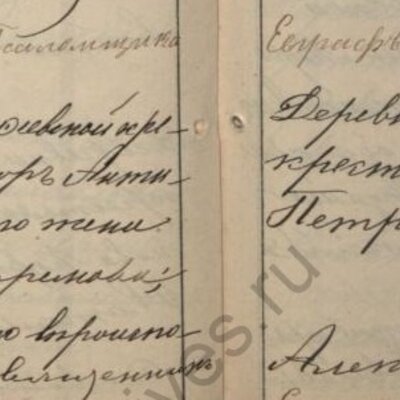 Псаломщика
оевской кре-
оръ Анти-
го жена
ремова;
о вѣроиспо-
вященникъ
Евграфъ
Дерев
крест
Петр
Алек
ives.ru